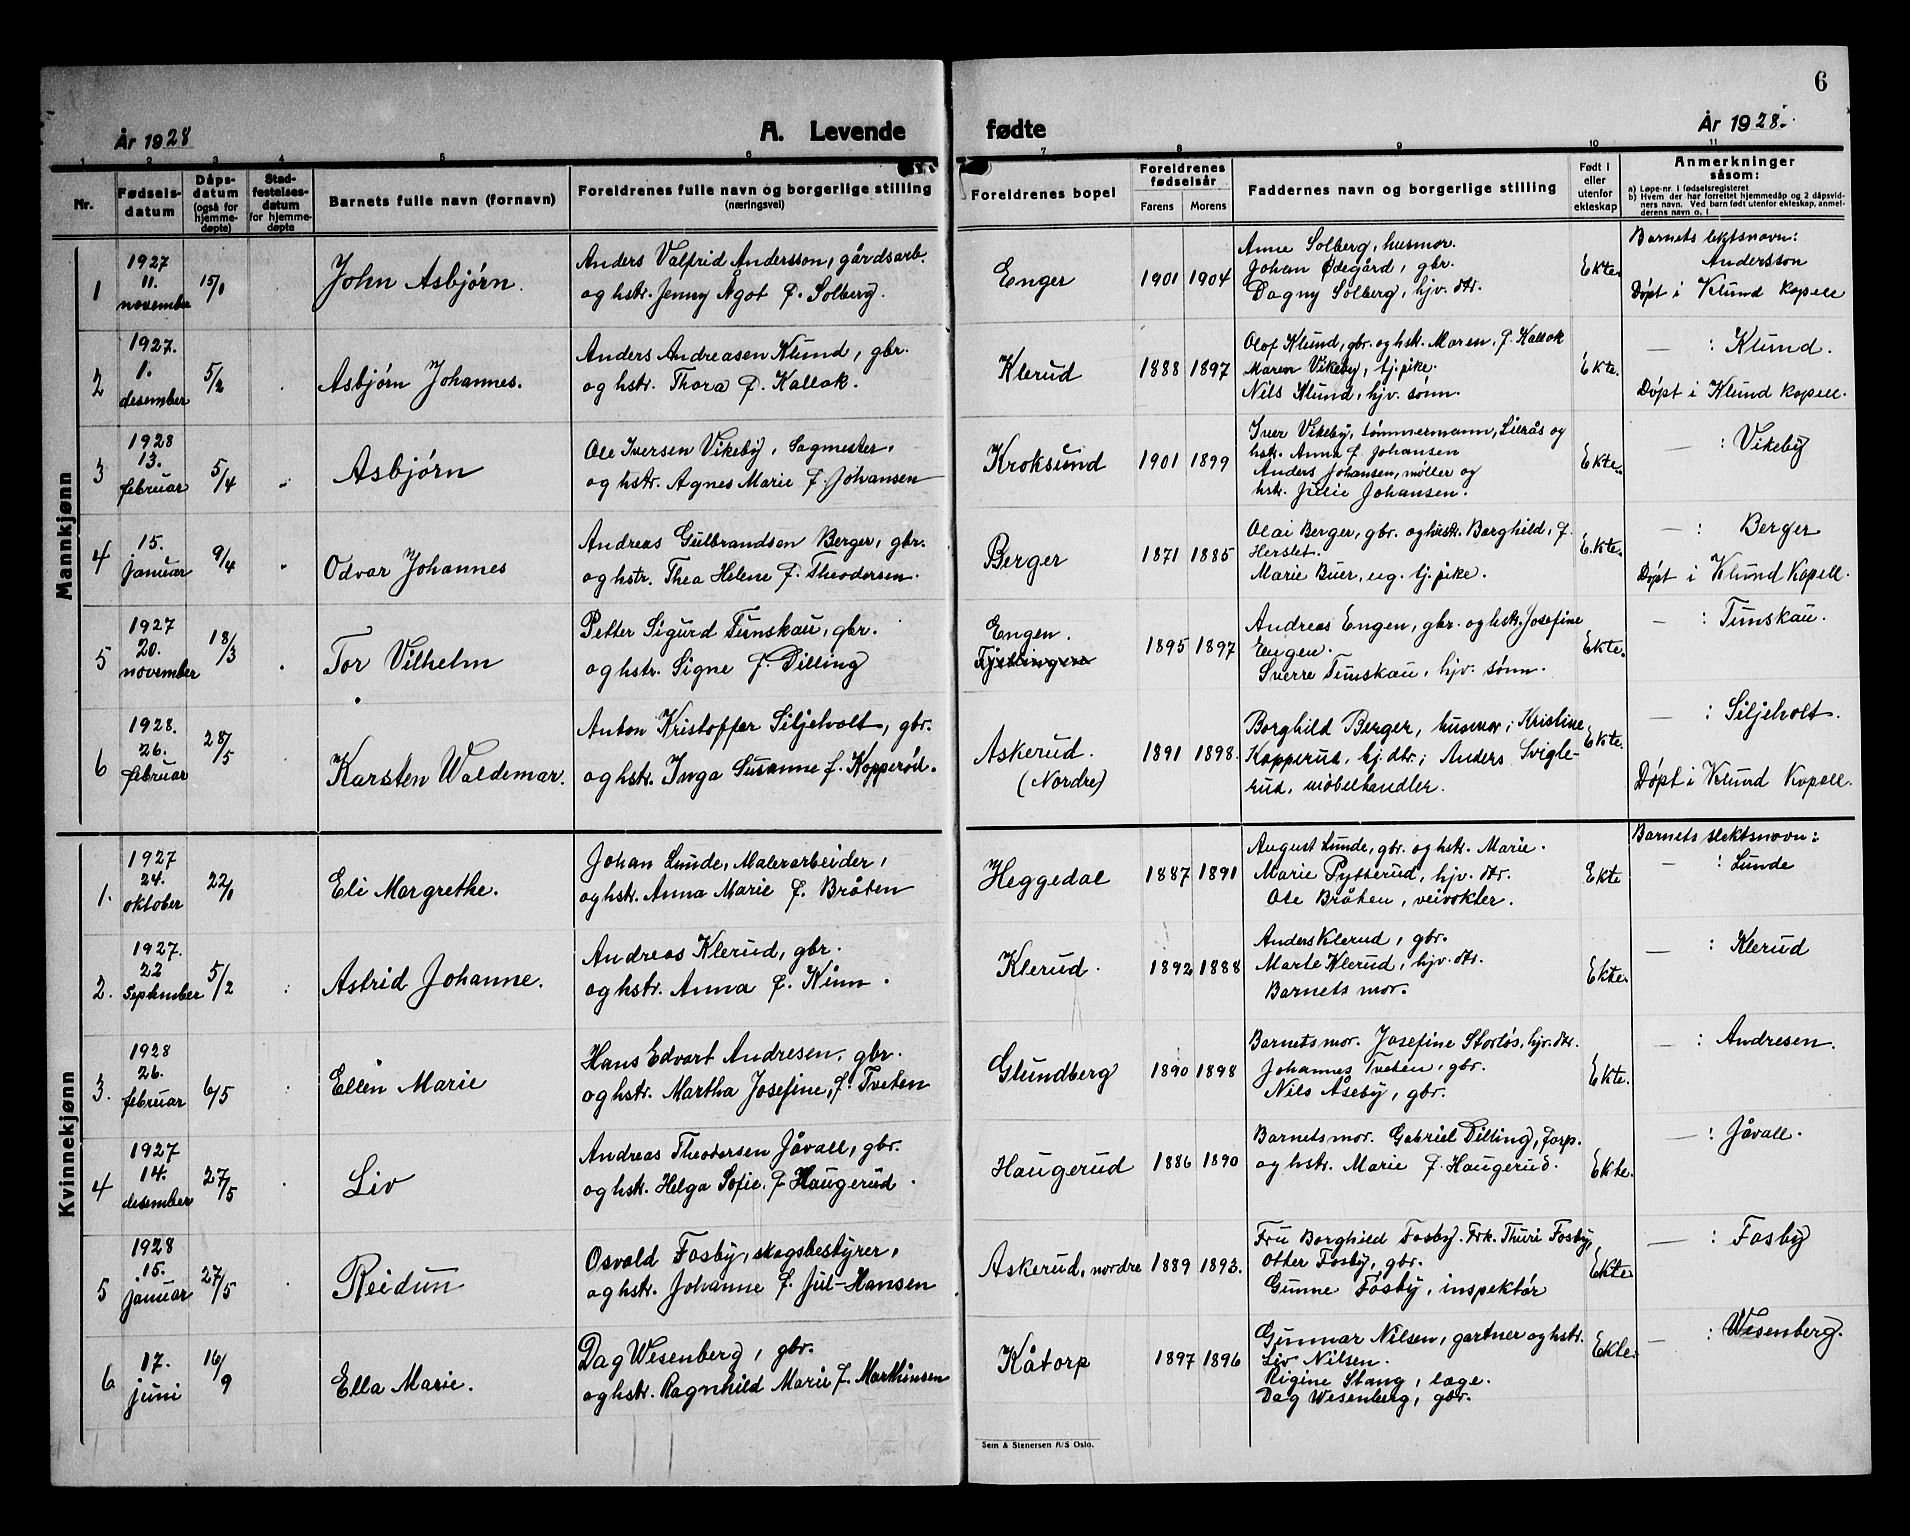 6
År 1928
A. Levende
fødte
År 1928.
1 2 3 4 5 6 7 8 9 10 11
Nr.
Fødsels-
datum
Dåps-
datum
(også for
hjemme-
døpte)
Stad-
festelses-
datum
for hjemme-
døpte
Barnets fulle navn (fornavn)
Foreldrenes fulle navn og borgerlige stilling
(næringsvei)
Foreldrenes bopel
Foreldrenes
fødselsår
Farens Morens
Faddernes navn og borgerlige stilling
Født i
eller
utenfor
ekteskap
Anmerkninger
såsom:
a) Løpe-nr. i fødselsregisteret
b) Hvem der har forrettet hjemmedåp og 2 dåpsvid-
ners navn. Ved barn født utenfor ekteskap, anmel-
derens navn o. l
Mannkjønn
1
1927
11.
november
15/1
John Asbjørn.
Anders Valfrid Andersson, gårdsarb.
og hstr. Jenny Ågot f. Solberg.
Enger
1901 1904
Anne Solberg, husmor.
Johan Ødegård, gbr.
Dagny Solberg, hjv. dtr.
Ekte.
Barnets slektsnavn:
Andersson
Døpt i Klund kapell
2
1927.
1.
desember
5/2
Asbjørn Johannes.
Anders Andreasen Klund, gbr.
og hstr. Thora f. Kallak.
Klerud
1888 1897
Olof Klund, gbr. og hstr. Maren, f. Kallak
Maren Vikeby, tj.pike.
Nils Klund, hjv. sønn.
Ekte.
— : Klund.
Døpt i Klund kapell.
3
1928
13.
februar
5/4
Asbjørn
Ole Iversen Vikeby, Sagmester,
og hstr. Agnes Marie f. Johansen
Kroksund
1901 1899
Iver Vikeby, tømmermann, Lierås og
hstr. Anna f. Johansen
Anders Johansen, møller og
hstr. Julie Johansen.
Ekte.
— : Vikeby
4
15.
januar
9/4
Odvar Johannes
Andreas Gulbrandsen Berger, gbr.
og hstr. Thea Helene f. Theodorsen.
Berger
1871 1885
Olai Berger, gbr. og hustr. Borghild, f.
Herslet.
Marie Buer, ug. tj.pike.
Ekte.
— : Berger
Døpt i Klund Kapell.
5
1927
20.
november
18/3
Tor Vilhelm
Petter Sigurd Tunskau, gbr.
og hstr. Signe f. Dilling
Engen.
1895 1897
Andreas Engen, gbr. og hstr. Josefine
Engen.
Sverre Tunskau, hjv. sønn.
Ekte.
— : Tunskau.
6
1928.
26.
februar
28/5
Karsten Waldemar.
Anton Kristoffer Siljeholt, gbr.
og hstr. Inga Susanne f. Kopperød.
Askerud.
(Nordre)
1891 1898.
Borghild Berger, husmor; Kristine
Kopperud, hj.dtr.; Anders Svigle-
rud, møbelhandler.
Ekte.
— : Siljeholt.
Døpt i Klund Kapell.
Kvinnekjønn
1.
1927
24.
oktober
22/1
Eli Margrethe.
Johan Lunde, Malerarbeider,
og hstr. Anna Marie f. Bråten
Heggedal
1887 1891
August Lunde, gbr. og hstr. Marie.
Marie Pytterud, hjv. dtr.
Ole Bråten, veivokter.
Ekte
Barnets slektsnavn:
— : Lunde
2.
1927.
22
September
5/2
Astrid Johanne.
Andreas Klerud, gbr.
og hstr. Anna f. Kinn.
Klerud.
1892 1888
Anders Klerud, gbr.
Marte Klerud, hjv. dtr.
Barnets mor.
Ekte.
— : Klerud
3.
1928
26.
februar
6/5
Ellen Marie
Hans Edvart Andresen, gbr.
og hstr. Martha Josefine, f. Tveten
Glundberg
1890 1898
Barnets mor. Josefine Storløs, hjv. dtr.
Johannes Tveten, gbr.
Nils Åseby, gbr.
Ekte.
— : Andresen.
4
1927
14.
desember
27/5
Liv
Andreas Theodorsen Jåvall, gbr.
og hstr. Helga Sofie. f Haugerud.
Haugerud
1886 1890
Barnets mor. Gabriel Dilling, forp.
og hstr. Marie f. Haugerud.
Ekte.
— : Jåvall.
5
1928
15.
januar
27/5
Reidun
Osvald Fosby, skogsbestyrer,
og hstr. Johanne f. Jul-Hansen
Askerud, nordre
1889 1893.
Fru Borghild Fosby. Frk. Thuri Fosby,
Otter Fosby, gbr.
Gunne Fosby, inspektør
Ekte
— : Fosby
6
17.
juni
16/9
Ella Marie.
Dag Wesenberg, gbr.
og hstr. Ragnhild Marie f. Marthinsen
Kåtorp
1897 1896
Gunnar Nilsen, gartner og hstr.
Liv Nilsen.
Rigine Stang, lage.
Dag Wesenberg, gbr.
Ekte.
— : Wesenberg.
Sem & Stenersen A/S Oslo.